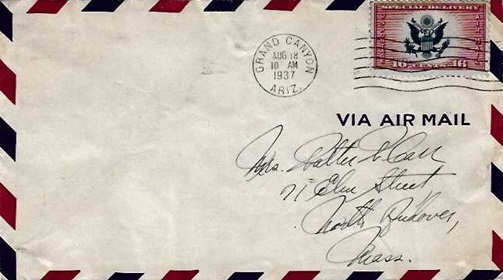 SPECIAL DELIVERY
16 CENTS 16
GRAND CANYON
AUG 18
10 AM
1937
ARIZ.
VIA AIR MAIL
Mrs. Walter
71 Elm Street
North Andover,
Mass.